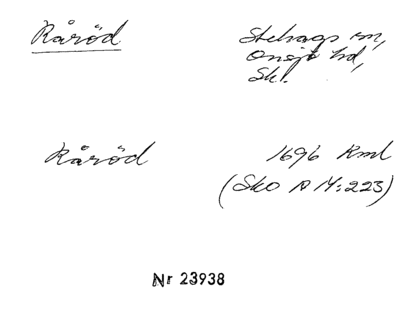 Råröd
Stehags sn,
Onsjö hd,
Skl.
Råröd
1696 Rml
(Sko A IV:223)
Nr 23938